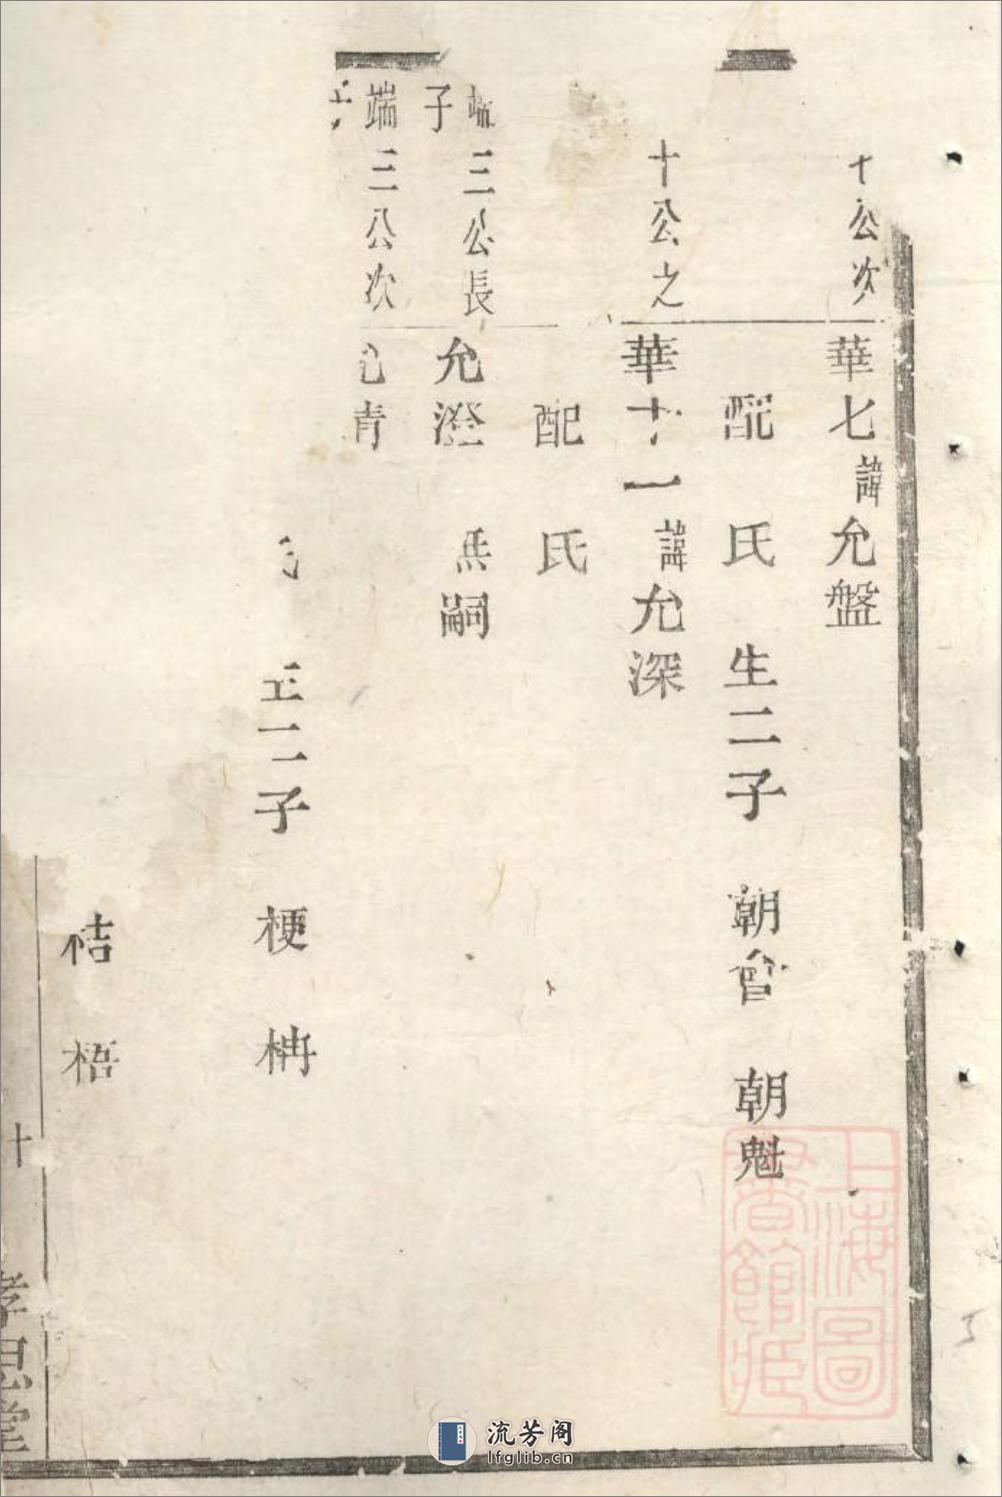 十公次
華七諱允盤
配 氏 生二子 朝 朝魁
十公之
華十一諱允深
配 氏
端三公長子
允澄 無嗣
端三公次
二子 梗 枏
桔 梧
十
孝思堂
上海圖書館藏
流芳阁
lfglib.cn